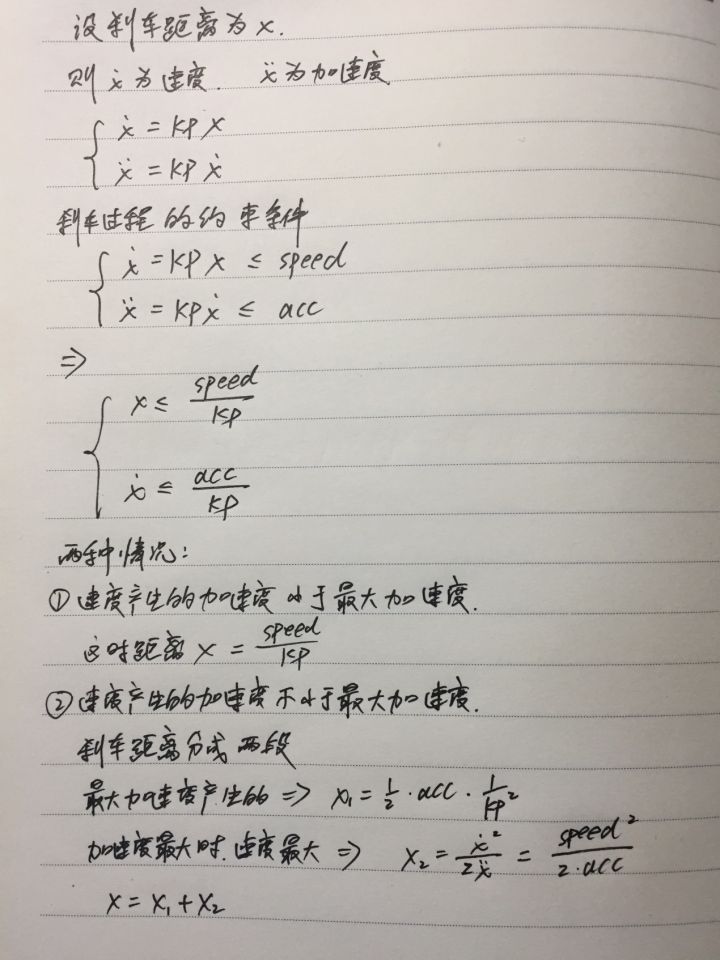 设刹车距离为 x.
则 ẋ 为速度. ẍ 为加速度
ẋ = kp x
ẍ = kp ẋ
刹车过程的约束条件
ẋ = kp x ≤ speed
ẍ = kp ẋ ≤ acc
⇒
x ≤ speed/kp
ẋ ≤ acc/kp
两种情况:
① 速度产生的加速度小于最大加速度.
这时距离 x = speed/kp
② 速度产生的加速度不小于最大加速度.
刹车距离分成两段
最大加速度产生的 ⇒ x₁ = 1/2 · acc · 1/kp²
加速度最大时. 速度最大 ⇒ x₂ = ẋ²/2ẍ = speed²/2·acc
x = x₁ + x₂